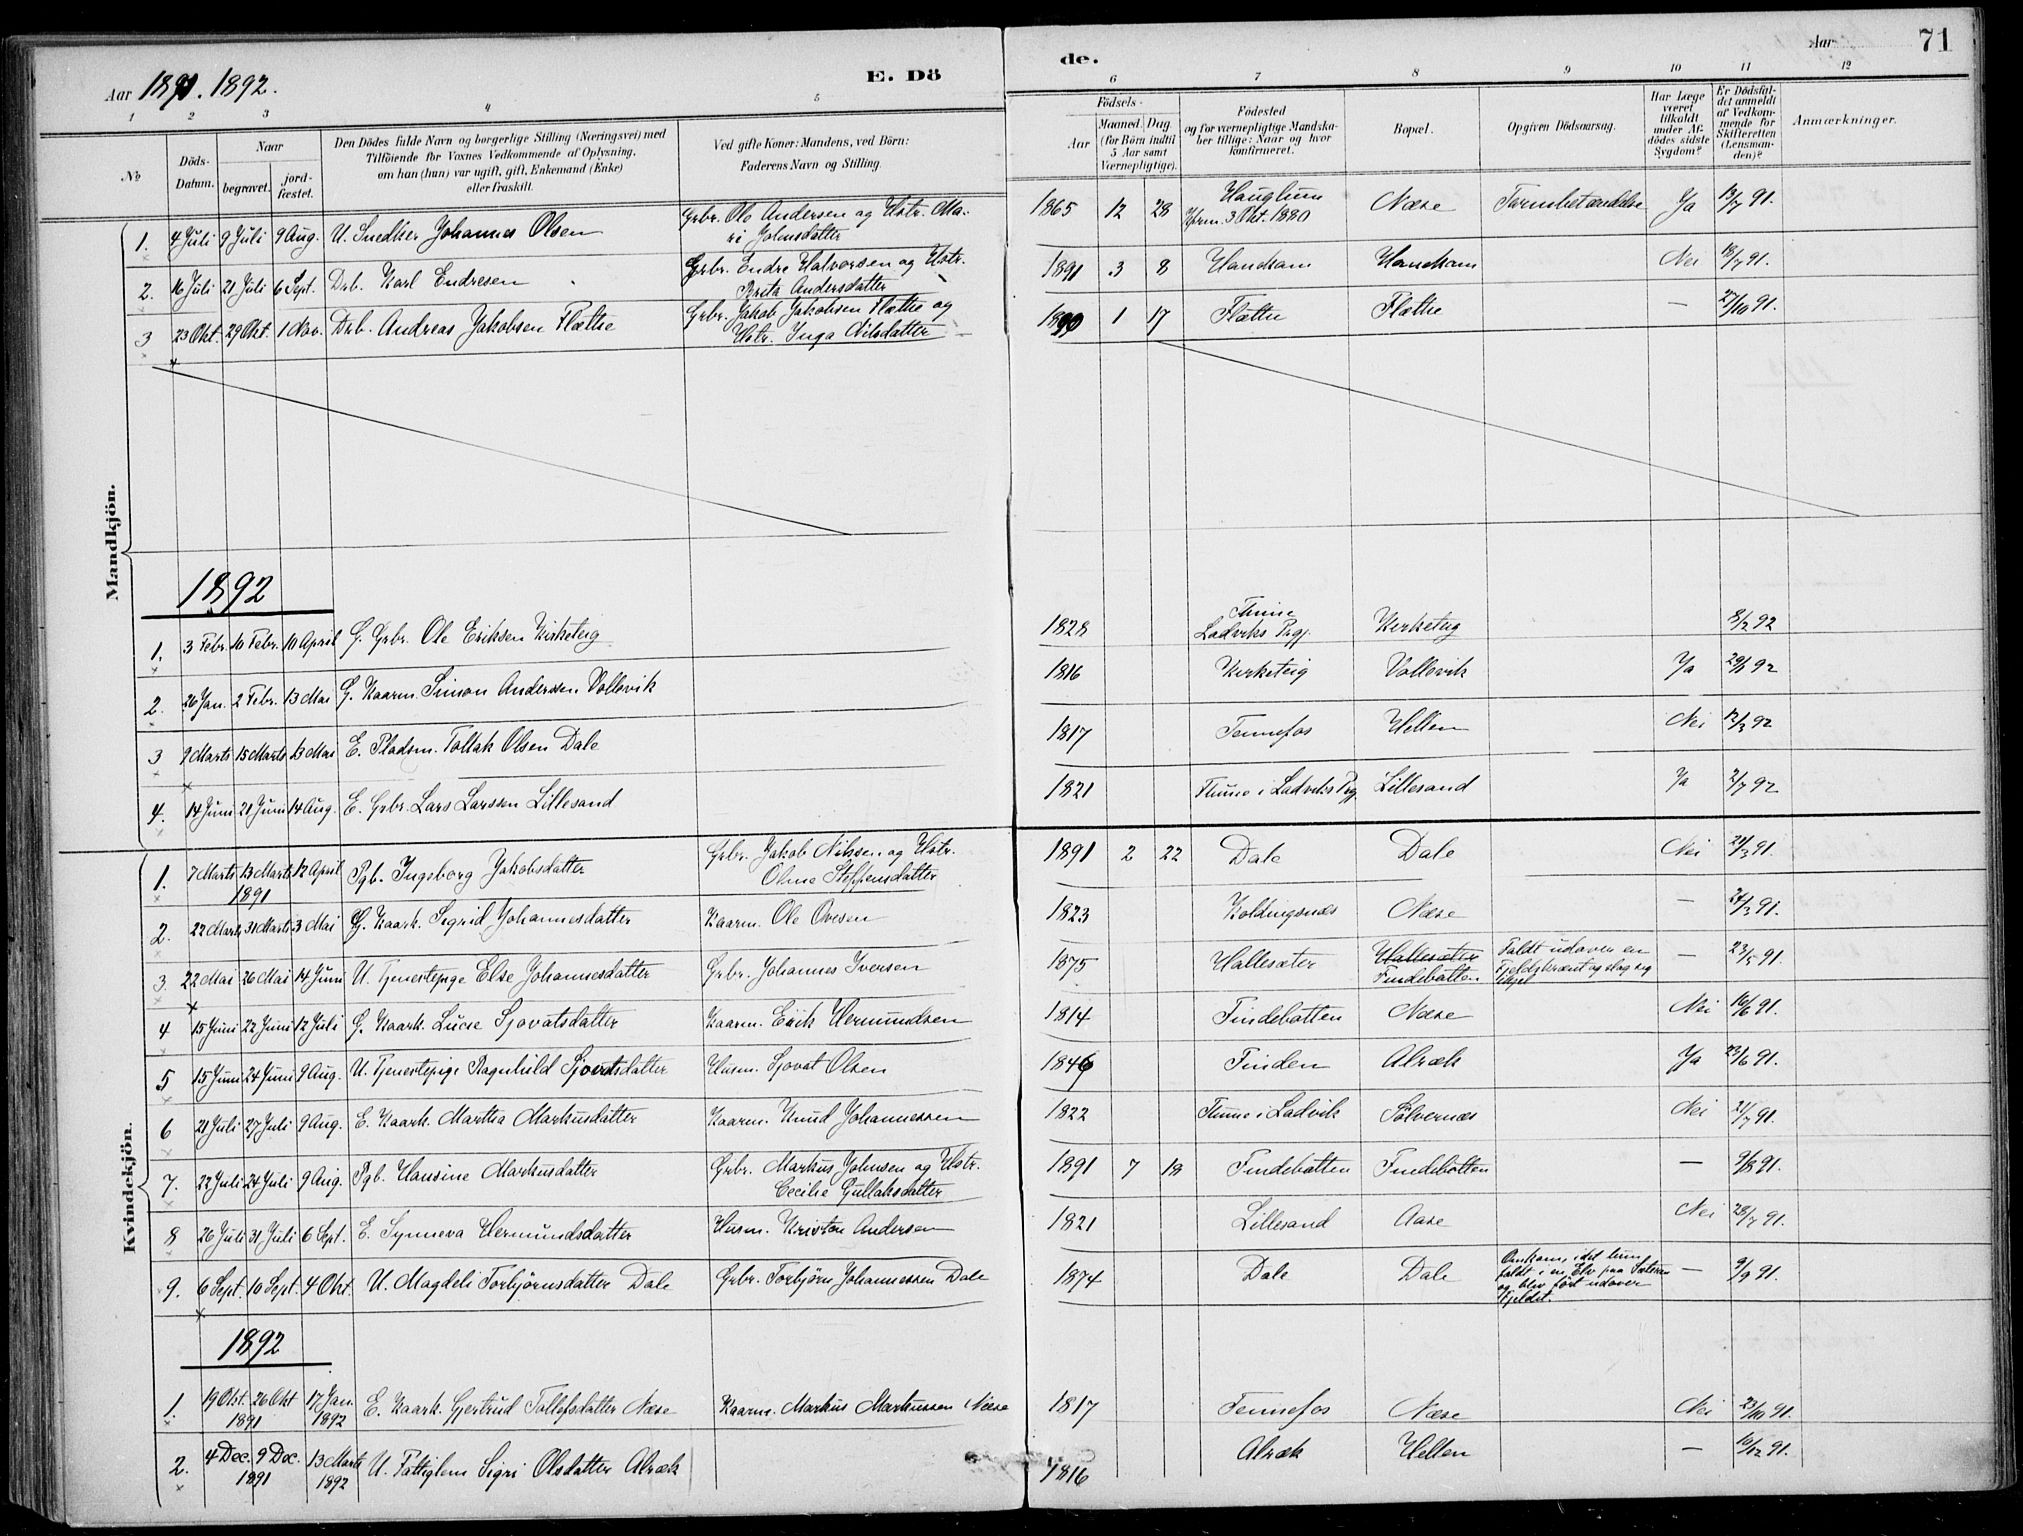 Aar 1891. 1892.
E. Dö
de.
Aar
71
1 2 3 4 5 6 7 8 9 10 11 12
No
Döds-Datum.
Naar
begravet.
jord-fæstet.
Den Dödes fulde Navn og borgerlige Stilling (Næringsvei) med
Tilföiende for Voxnes Vedkommende af Oplysning,
om han (hun) var ugift, gift, Enkemand (Enke)
eller fraskilt.
Ved gifte Koner: Mandens, ved Börn:
Faderens Navn og Stilling.
Födsels-
Aar
Maaned. Dag.
(for Börn indtil
5 Aar samt
Værnepligtige).
Födested
og for værnepligtige Mandska-
ber tillige: Naar og hvor
konfirmeret.
Bopæl.
Opgiven Dödsaarsag.
Har Læge
været
tilkaldt
under Af-
dödes sidste
Sygdom?
Er Dödsfal-
det anmeldt
af Vedkom-
mende for
Skifteretten
(Lensman-
den)?
Anmærkninger.
Mandkjön.
1. 4 Juli 9 Juli 9 Aug. U. Snedker Johannes Olsen Grbr. Ole Andersen og Hstr. Ma-
ri Johnsdatter 1865 12 28 Hauglum
Kfrm. 3 Okt. 1880 Næse Tarmbetændelse Ja 13/7 91.
2. 16 Juli 21 Juli 6 Sept. Drb. Karl Endresen Grbr. Endre Halvorsen og Hstr.
Brita Andersdatter 1891 3 8 Hanekam Hanekam Nei 18/7 91.
3 23 Okt. 29 Okt. 1 Nov. Drb. Andreas Jakobsen Flæthe Grbr. Jakob Jakobsen Flæthe og
Hstr. Inga Nilsdatter 1890 1 17 Flæthe Flæthe — 27/10 91.
1892
1. 3 Febr. 10 Febr. 10 April G. Grbr. Ole Eriksen Kirketeig 1828 Thune
Ladviks Prgj. Kirketeig 8/2 92
2. 26 Jan. 2 Febr. 13 Mai G. Kaarm. Simon Andersen Vollevik 1816 Kirketeig Vollevik Ja 29/1 92
3 9 Marts 15 Marts 13 Mai E. Pladsm. Tollak Olsen Dale 1817 Tennefos Hellen Nei 12/3 92
4. 14 Juni 21 Juni 14 Aug. E. Grbr. Lars Larssen Lillesand 1821 Thune i Ladviks Prgj Lillesand Ja 2/7 92
Kvindekjön.
1. 7 Marts 13 Marts 12 April Pgb. Ingeborg Jakobsdatter Grbr. Jakob Nilsen og Hstr.
1891
Oline Steffensdatter 1891 2 22 Dale Dale Nei 21/3 91.
2. 22 Marts 31 Marts 3 Mai G. Kaark. Sigrid Johannesdatter Kaarm. Ole Ovesen 1823 Koldingsnæs Næse — 24/3 91.
3. 22 Mai 26 Mai 14 Juni U. Tjenestepige Else Johannesdatter Grbr. Johannes Iversen 1875 Hallesæter Hallesæter
Findebotten Faldt udover en
Fjeldskrænt og slog sig
ihjel — 23/5 91.
4 15 Juni 22 Juni 12 Juli G. Kaark. Lucie Sjovatsdatter Kaarm. Erik Hermundsen 1814 Findebotten Næse Nei 16/6 91.
5 15 Juni 24 Juni 9 Aug. U. Tjenestepige Ragnhild Sjovatsdatter Husm. Sjovat Olsen 1846 Finden Alræk Ja 23/6 91.
6 21 Juli 27 Juli 9 Aug. E. Kaark. Martha Markusdatter Kaarm. Knud Johannessen 1822 Thune i Ladvik Sølvernæs Nei 21/7 91.
7. 22 Juli 24 Juli 9 Aug. Pgb. Hansine Markusdatter Grbr. Markus Johnsen og Hstr.
Cecilie Gullaksdatter 1891 7 18 Findebotten Findebotten — 9/8 91.
8 26 Juli 31 Juli 6 Sept. E. Synneva Hermundsdatter Husm. Kristen Andersen 1821 Lillesand Aase Nei 28/7 91.
9. 6 Sept. 10 Sept. 4 Okt. U. Magdeli Torbjørnsdatter Dale Grbr. Torbjørn Johannessen Dale 1874 Dale Dale Omkom, idet hun
faldt i en Elv paa Sæteren
og blev ført udover
Fjeldet. — 9/9 91.
1892
1. 19 Okt. 26 Okt 17 Jan. E. Kaark. Gjertrud Tollefsdatter Næse Kaarm. Markus Markussen Næse 1817 Tennefos Næse Nei 23/10 91.
1891 1892
2. 4 Dec. 9 Dec. 13 Marts U. Fattiglem Sigri Olsdatter Alræk 1816 Alræk Hellen — 10/12 91.
1891 1892